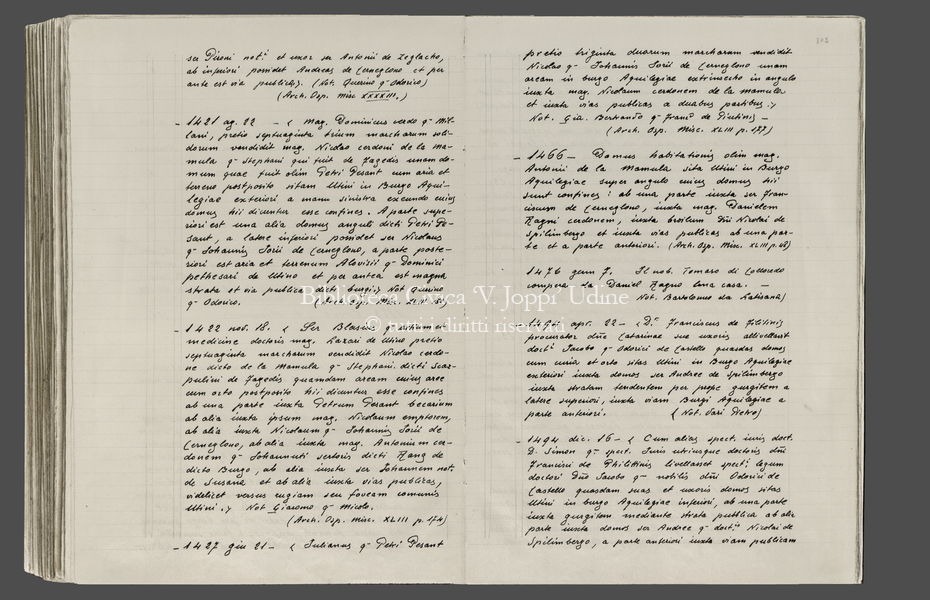 ser Pironi not.i et uxor ser Antonii de Zeglacho,
ab inferiori possidet Andreas de Cerneglono et per
ante est via publica). (Not. Quirino q- Odorico)
(Arch. Osp. Misc. XXXXIII,)
- 1421 ag. 22 - « Mag. Dominicus verdo q- Mil-
lani, pretio septuaginta trium marcharum soli-
dorum vendidit mag. Nicolao cerdoni de la Ma-
mula q- Stephani qui fuit de Fagedis unam do-
mum quae fuit olim Petri Pesant cum aria et
terreno postposito sitam Utini in Burgo Aqui-
legiae exteriori a manu sinistra exeundo cuius
domus hii dicuntur esse confines. A parte supe-
riori est una alia domus anguli dicti Petri Pe-
sant, a latere inferiori possidet ser Nicolaus
q- Johannis Sorii de Cerneglono, a parte poste-
riori est aria et terrenum Aloysii q- Dominici
pethesari de Utino et per antea est magna
strata et via publica dicti burgi.» Not Quirino
q- Odorico. (Arch. Osp. Misc.
- 1422 nov. 18. « Ser Blasius
medicine doctoris mag. Lazari de Utino pretio
septuaginta marcharum vendidit Nicolao cerdo-
ne dicto de la Mamula q- Stephani dicti Scar-
pulini de Fagedis quamdam aream cuius aree
cum orto postposito hii dicuntur esse confines
ab una parte iuxta Petrum Pesant becarium
ab alia iuxta ipsum mag. Nicolaum emptorem,
ab alia iuxta Nicolaum q- Johannis Sorii de
Cerneglono, ab alia iuxta mag. Antonium cer-
donem q- Johannuti sertoris dicti Rang de
dicto Burgo, ab alia iuxta ser Johannem not.
de Susana et ab alia iuxta vias publicas,
videlicet versus rugiam seu foveam comunis
Utini.» Not Giacomo q- Nicolo.
(Arch. Osp. Misc. XLIII p. 174)
- 1427 giu 21 - « Julianus q- Petri Pesant
pretio triginta duarum marcharum vendidit
Nicolao q- Johannis Sorii de Cerneglono unam
aream in burgo Aquilegiae extrinsecto in angulo
iuxta mag. Nicolaum cerdonem de la mamula
et iuxta vias publicas a duabus partibus.»
Not. Gia. Bertrando q- Franc.o de Piutinis -
(Arch. Osp. Misc. XLIII p. 177)
- 1466 - Domus habitationis olim mag.
Antonii de la Mamula sita Utini in Burgo
Aquilegiae super angulo cuius domus hii
sunt confines: ab una parte iuxta ser Fran-
ciscum de Cerneglono, iuxta mag. Danielem
Ragni cerdonem, iuxta broilum Dni Nicolai de
Spilimbergo et iuxta vias publicas ab una par-
te et a parte anteriori. (Arch. Osp. Misc. XLIII p. 48)
1476 genn 7. Il nob. Tomaso di Colloredo
compera da Daniel Ragno una casa. -
Not. Bartolomeo da Latisana)
apr. 22 - «D.r Franciscus de Filitinis
procurator dne Catarinae sue uxoris allivellavit
doct.i Jacobo q- Odorici de Castello quasdas domos
cum curia et orto sitas Utini in Burgo Aquilegiae
exteriori iuxta domos ser Andree de Spilimbergo
iuxta stratam tendentem per prope gurgitem a
latere superiori, iuxta viam Burgi Aquilegiae a
parte anteriori. (Not. Sari Pietro)
- 1494 dic. 16 - « Cum alias spect. iuris doct.
D. Simon q- spect. Juris utriusque doctoris dni
Francisci de Philittinis livellasset spect.i legum
doctori Dno Jacobo q- nobilis dni Odorici de
Castello quasdam suas et uxoris domos sitas
Utini in burgo Aquilegiae inferiori, ab una parte
iuxta gurgitem mediante strata publica ab alia
parte iuxta domos ser Andree q- doct.is Nicolai de
Spilimbergo, a parte anteriori iuxta viam publicam
Biblioteca Civica 'V. Joppi' Udine
© tutti i diritti riservati